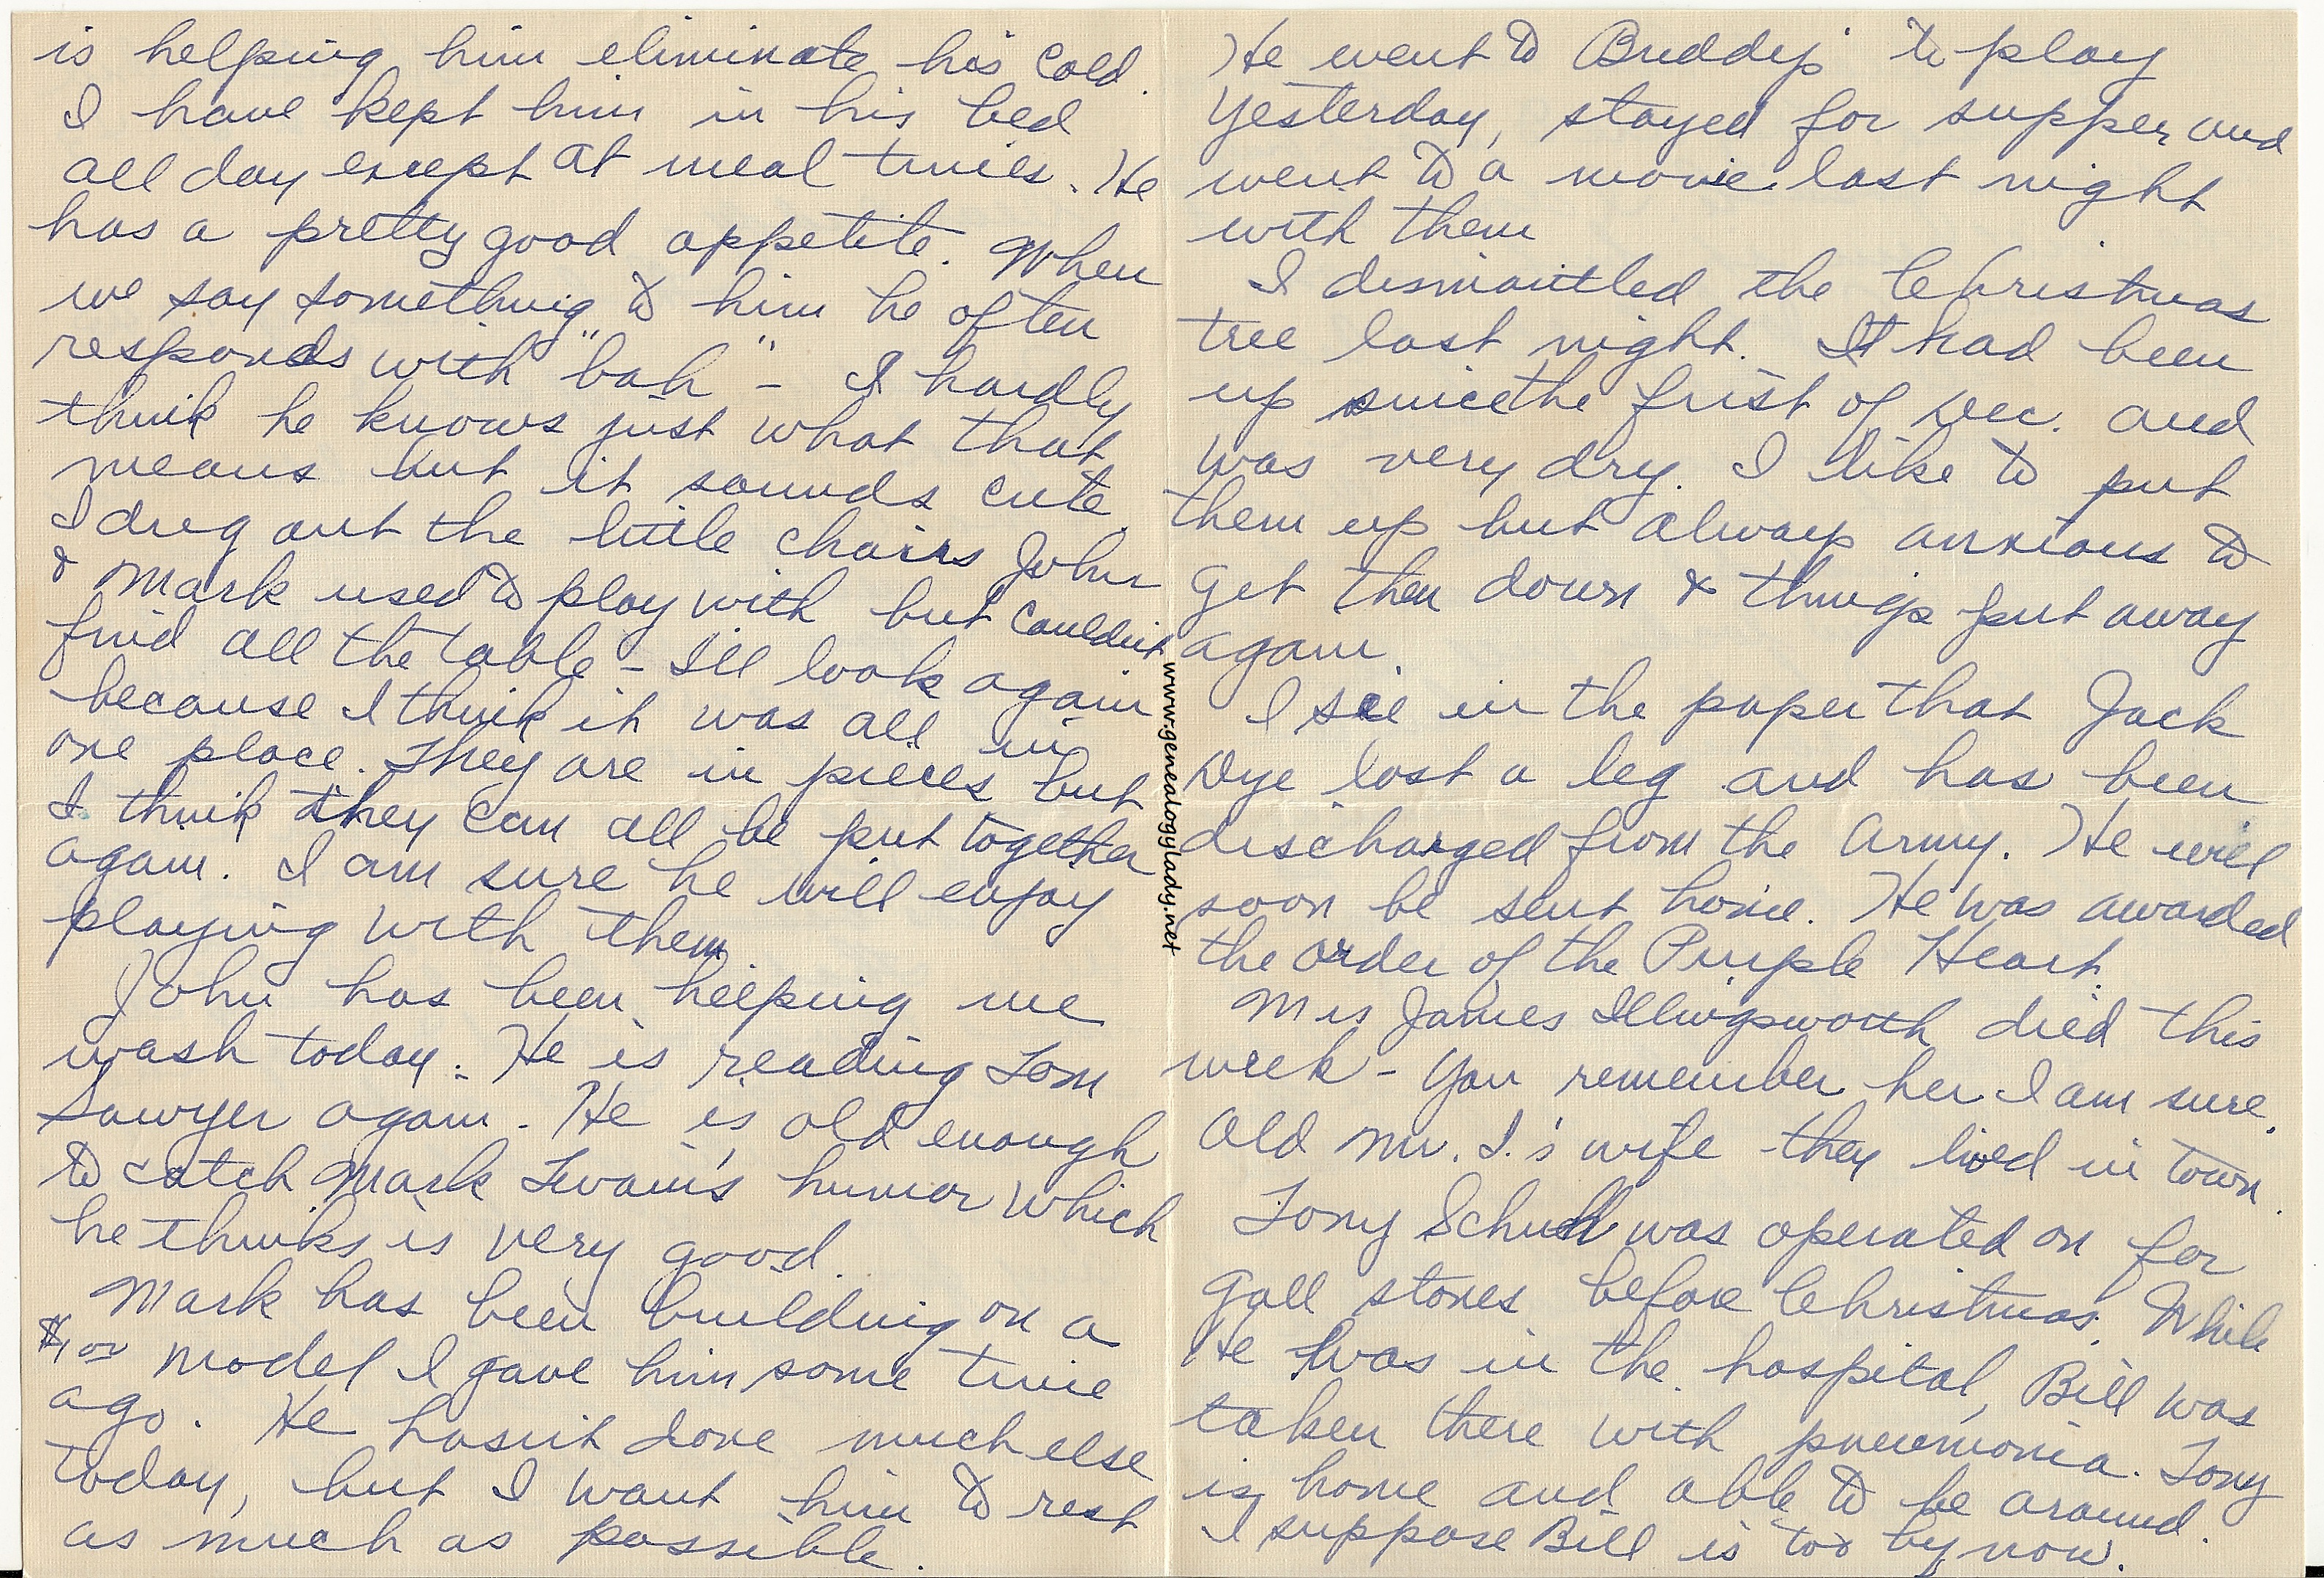 is helping him eliminate his cold.
I have kept him in his bed
all day except at meal times. He
has a pretty good appetite. When
we say something to him he often
responds with "bah" - I hardly
think he knows just what that
means but it sounds cute.
I dug out the little chairs John
& Mark used to play with but couldn't
find all the table - I'll look again
because I think it was all in
one place. They are in pieces but
I think they can all be put together
again. I am sure he will enjoy
playing with them
John has been helping me
wash today. He is reading Tom
Sawyer again. He is old enough
to catch Mark Twain's humor which
he thinks is very good.
Mark has been building on a
$1.00 model I gave him some time
ago. He hasn't done much else
today, but I want him to rest
as much as possible.
He went to Buddy's to play
yesterday, stayed for supper and
went to a movie last night
with them
I dismantled the Christmas
tree last night. It had been
up since the first of Dec. and
was very dry. I like to put
them up but always anxious to
get them down & things put away
again.
I see in the paper that Jack
Dye lost a leg and has been
discharged from the Army. He will
soon be sent home. He was awarded
the order of the Purple Heart.
Mrs James Illingsworth died this
week - You remember her I am sure.
Old Mr. I.'s wife they lived in town.
Tony Schull was operated on for
gall stones before Christmas. While
He was in the hospital, Bill was
taken there with pneumonia. Tony
is home and able to be around.
I suppose Bill is too by now.
www.genealogylady.net